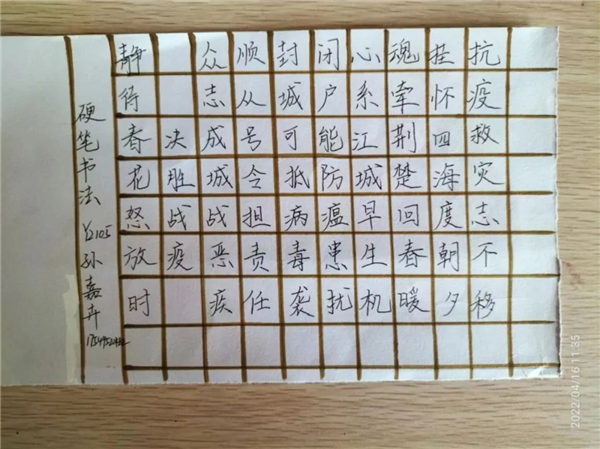 抗疫救灾志不移
挂怀四海度朝夕
魂牵荆楚回春暖
心系江城早生机
闭户能防瘟患扰
封城可抵病毒袭
顺从号令担责任
众志成城战恶疾
决胜战疫
静待春花怒放时
硬笔书法 孙嘉卉
2022/04/16 11:35